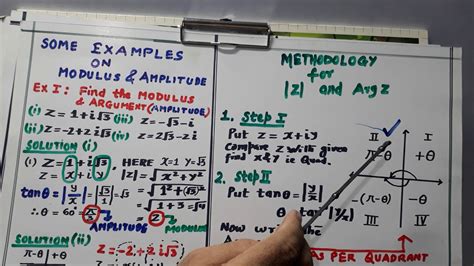 SOME EXAMPLES
ON
MODULUS & AMPLITUDE
EX I: Find the MODULUS
& ARGUMENT (AMPLITUDE)
(i) Z = 1 + i√3 (iii) Z = -√3 - i
(ii) Z = -2 + 2i√3 (iv) Z = 2√3 - 2i
SOLUTION (i)
(i) Z = 1 + i√3 HERE X=1 Y=√3
|Z| = √x² + y²
tanθ = |y/x| = |√3/1| = √1² + (√3)²
∴ θ = 60° = π/3 = √1+3 = √4
AMPLITUDE = 2 MODULUS
SOLUTION (ii)
Z = -2 + 2i√3
METHODOLOGY
for
|Z| and Arg Z
1. Step I
Put Z = x + iy
Compare Z with given
find x & y ie Quad.
2. Step II
Put tanθ = |y/x|
θ = tan |y/x|
Now the
II I
π-θ +θ
-θ
III IV
-(π-θ)
AS PER QUADRANT